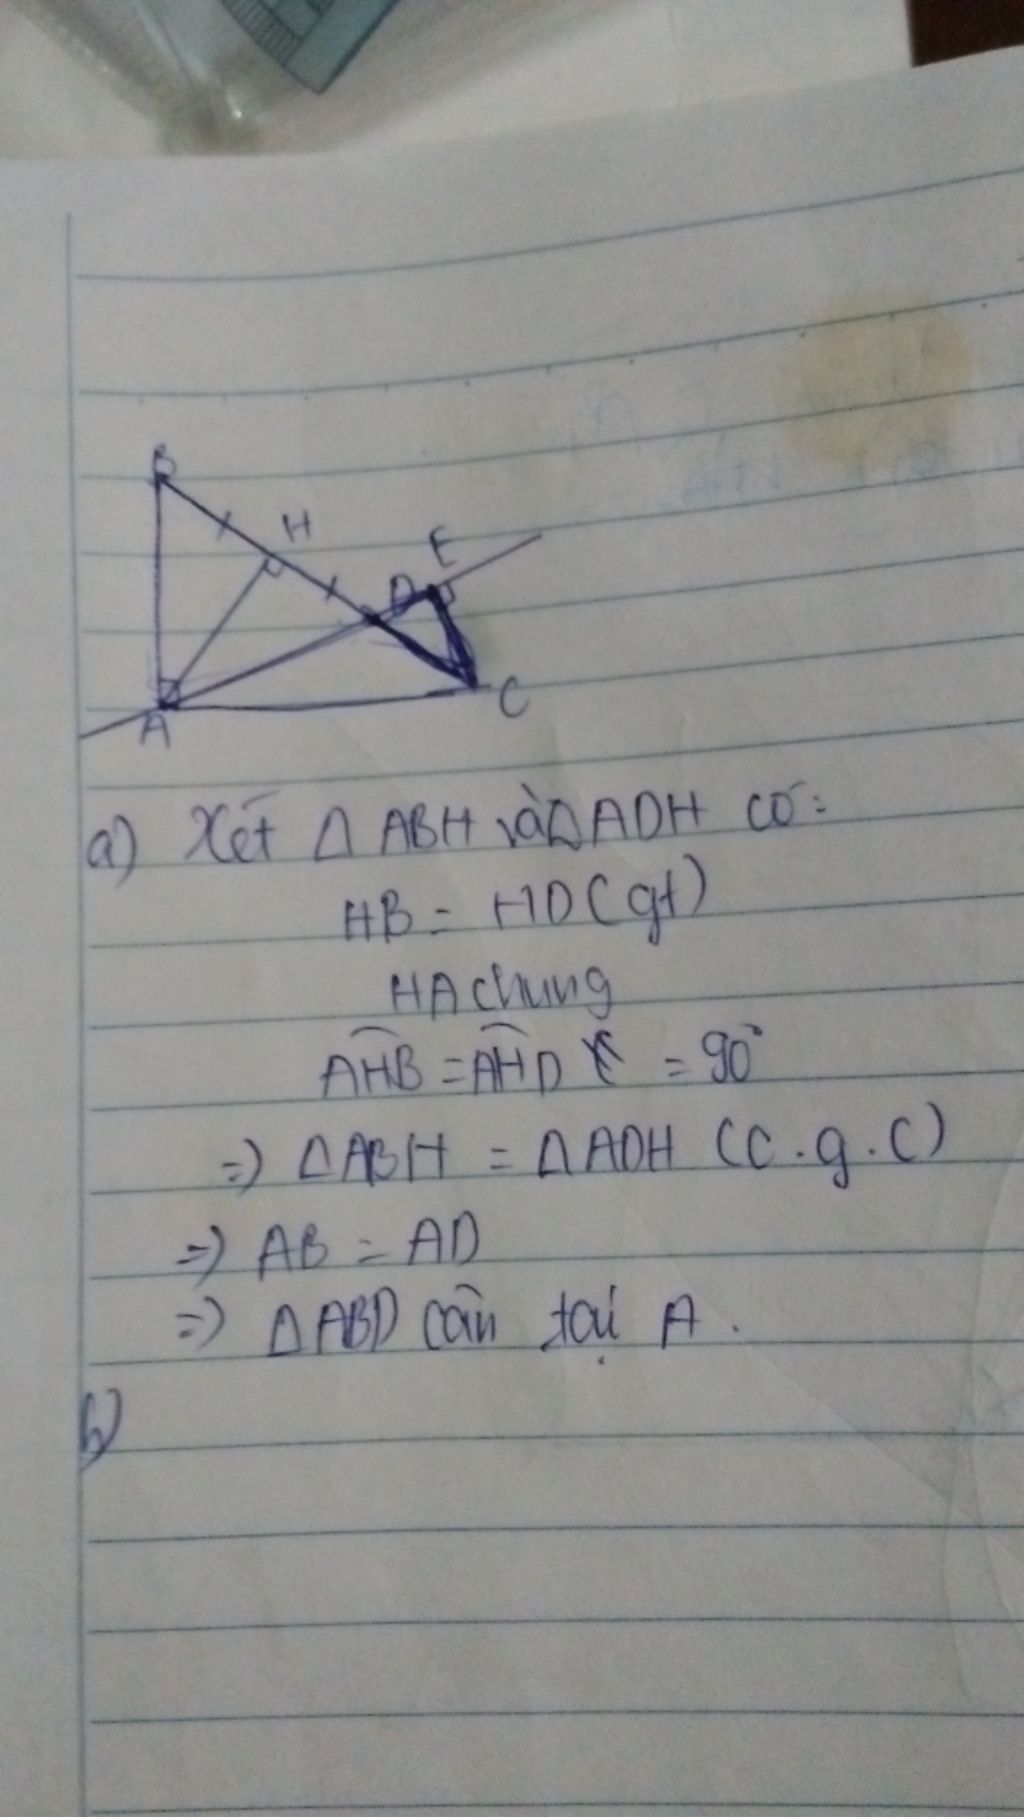 B
H
E
D
C
A
a) Xét Δ ABH và Δ ADH có:
HB = HD (gt)
HA chung
AHB = AHD = 90°
=> Δ ABH = Δ ADH (c.g.c)
=> AB = AD
=> Δ ABD cân tại A.
b)